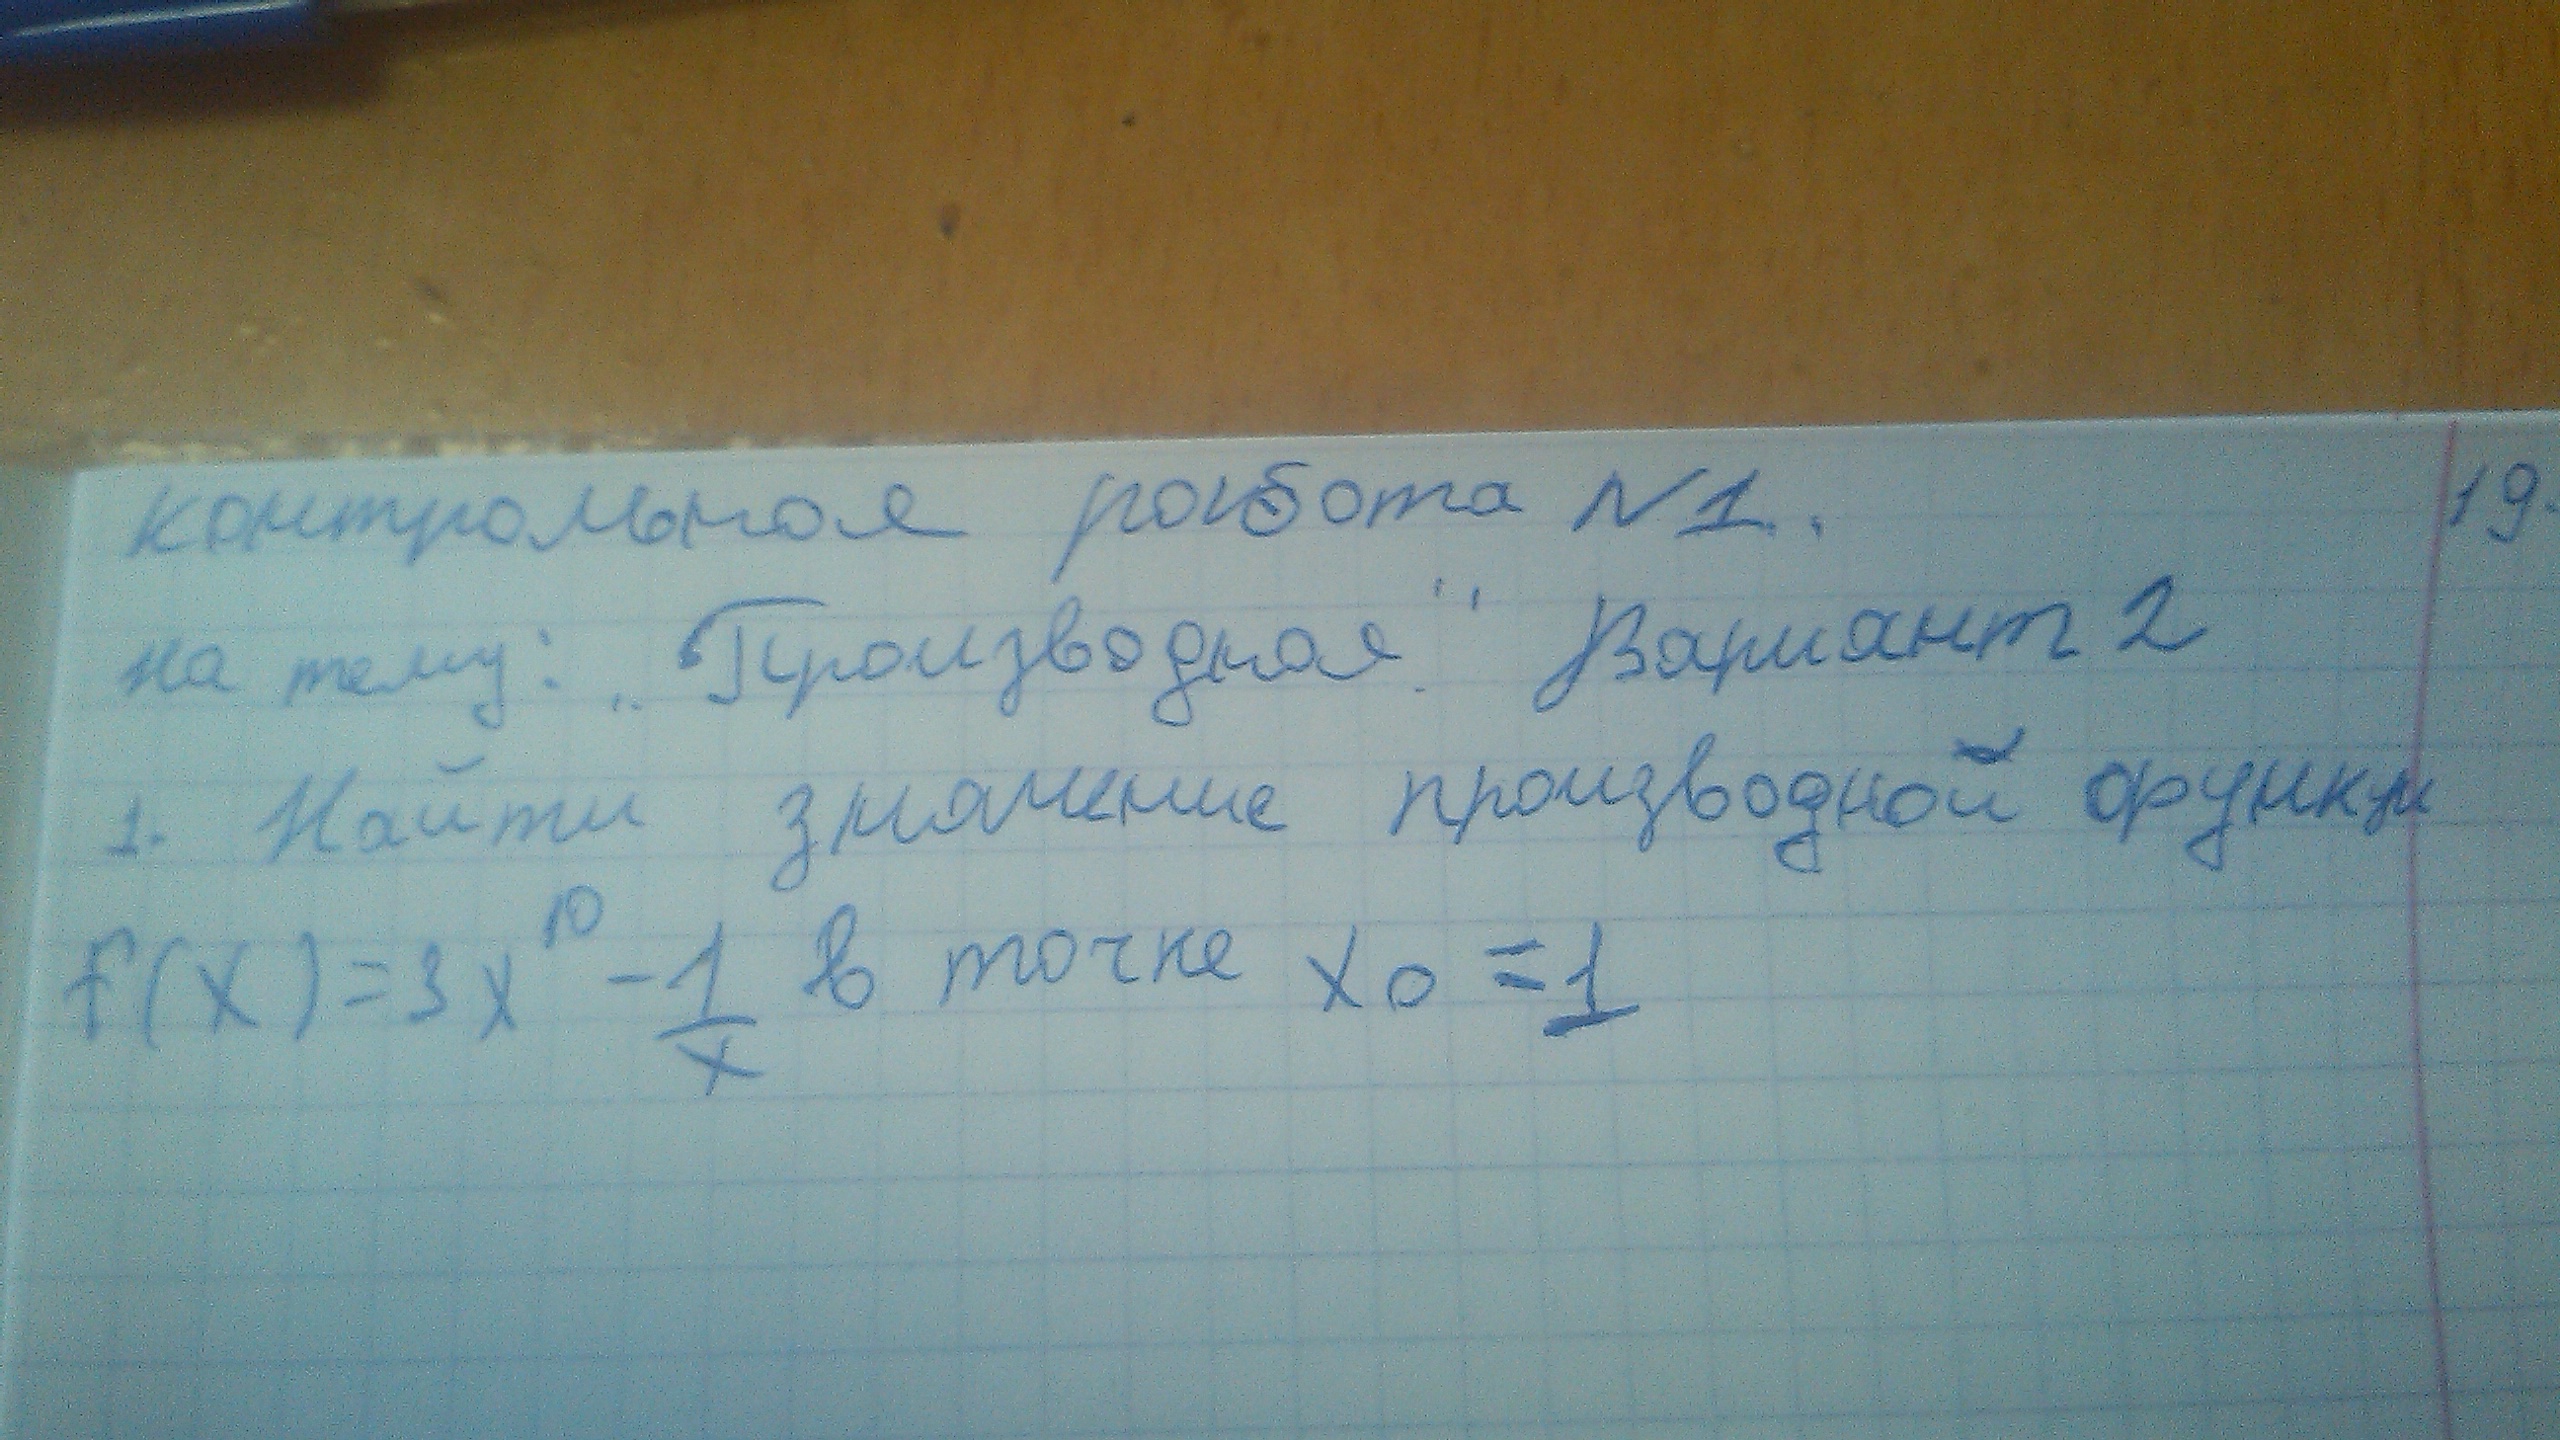 контрольная работа №1. 19.
на тему: „Производная“ Вариант 2
1. Найти значение производной функци
f(x)=3x¹⁰ - 1/x в точке x₀ = 1